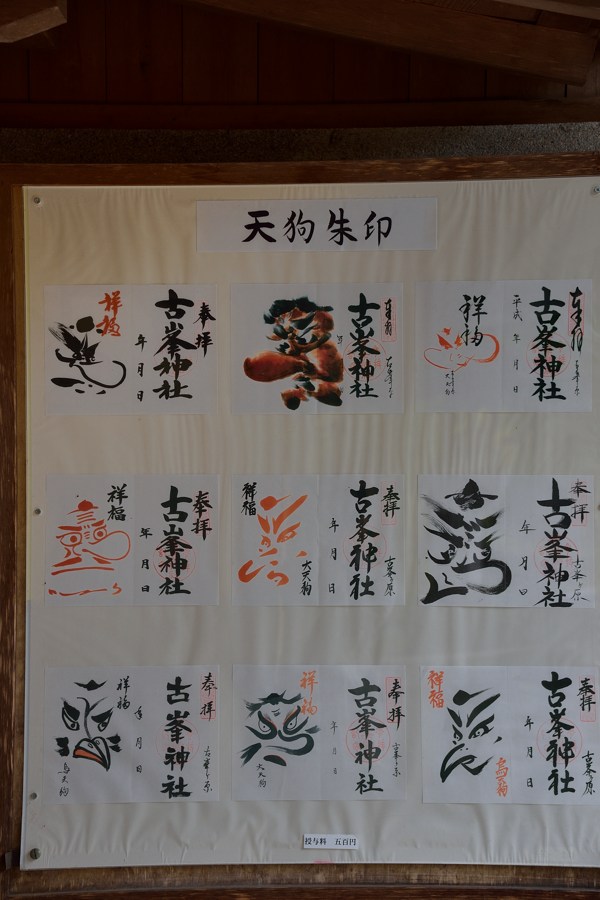 天狗朱印
奉拝
古峯神社
年 月 日
祥福
奉拝
古峯神社
奉拝
古峯神社
平成 年 月 日
祥福
奉拝
古峯神社
年 月 日
祥福
奉拝
古峯ヶ原
古峯神社
年 月 日
祥福
大天狗
奉拝
古峯ヶ原
古峯神社
年 月 日
奉拝
古峯ヶ原
古峯神社
年 月 日
祥福
烏天狗
奉拝
古峯ヶ原
古峯神社
年 月 日
祥福
大天狗
奉拝
古峯ヶ原
古峯神社
年 月 日
祥福
烏天狗
授与料 五百円